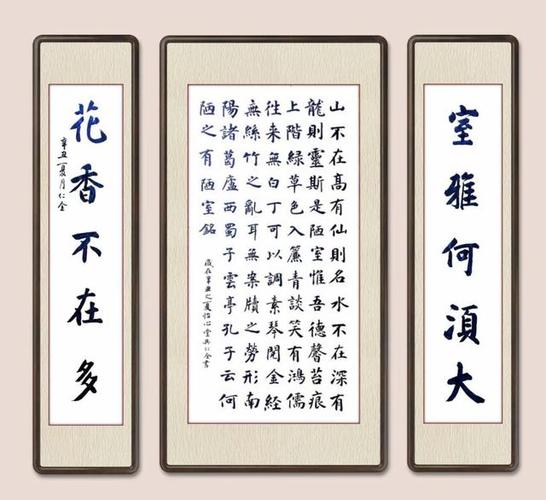 室雅何湏大
山不在高有仙則名水不在深有
龍則靈斯是陋室惟吾德馨苔痕
上階綠草色入簾青談笑有鴻儒
往来無白丁可以調素琴閱金經
無絲竹之亂耳無案牘之勞形南
陽諸葛廬西蜀子雲亭孔子云何
陋之有陋室銘
歲在辛丑之夏怡心堂仁全書
花香不在多
辛丑夏月仁全